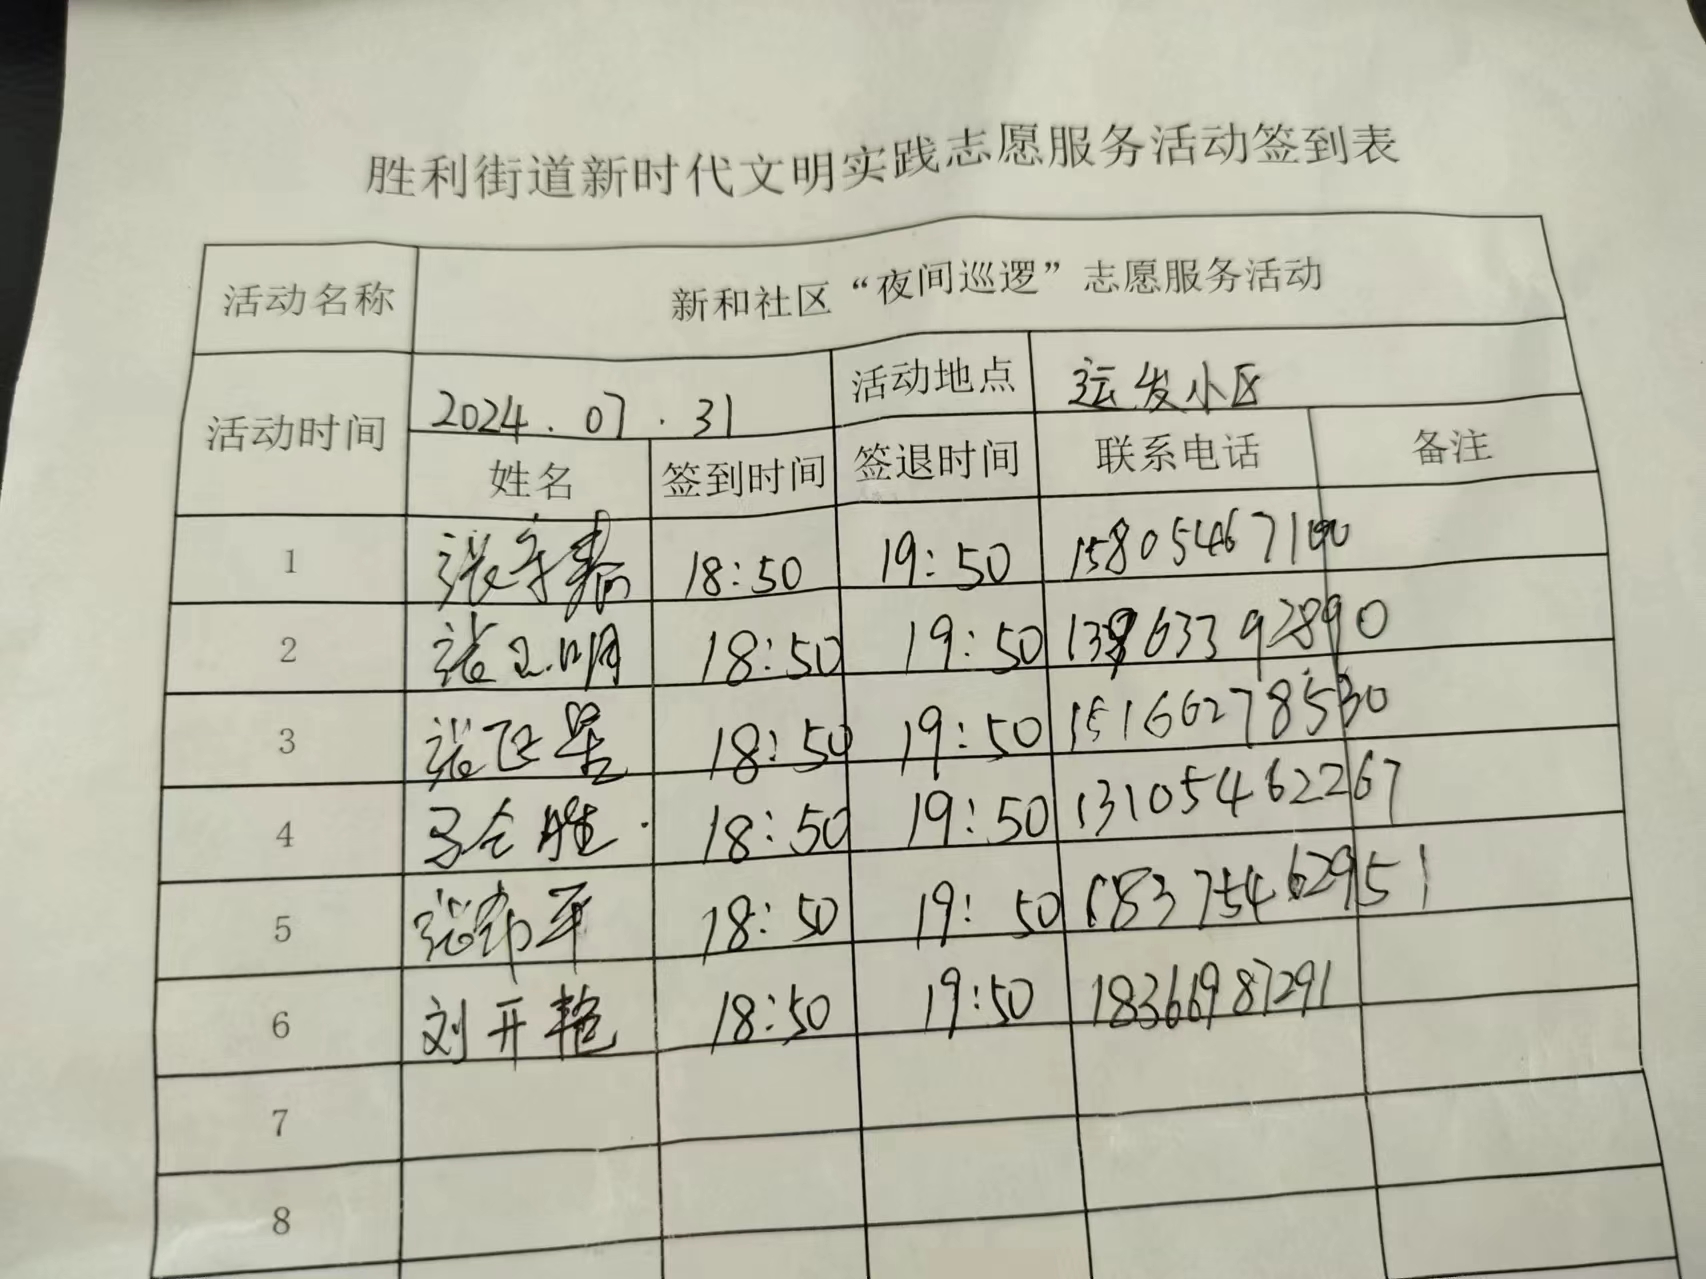 胜利街道新时代文明实践志愿服务活动签到表
活动名称 新和社区“夜间巡逻”志愿服务活动
活动时间 2024.07.31 活动地点 运发小区
姓名 签到时间 签退时间 联系电话 备注
1 18:50 19:50
2 张卫明 18:50 19:50
3 18:50 19:50 15166278530
4 18:50 19:50 13105462267
5 18:50 19:50 18375462951
6 刘开艳 18:50 19:50 18366987291
7
8